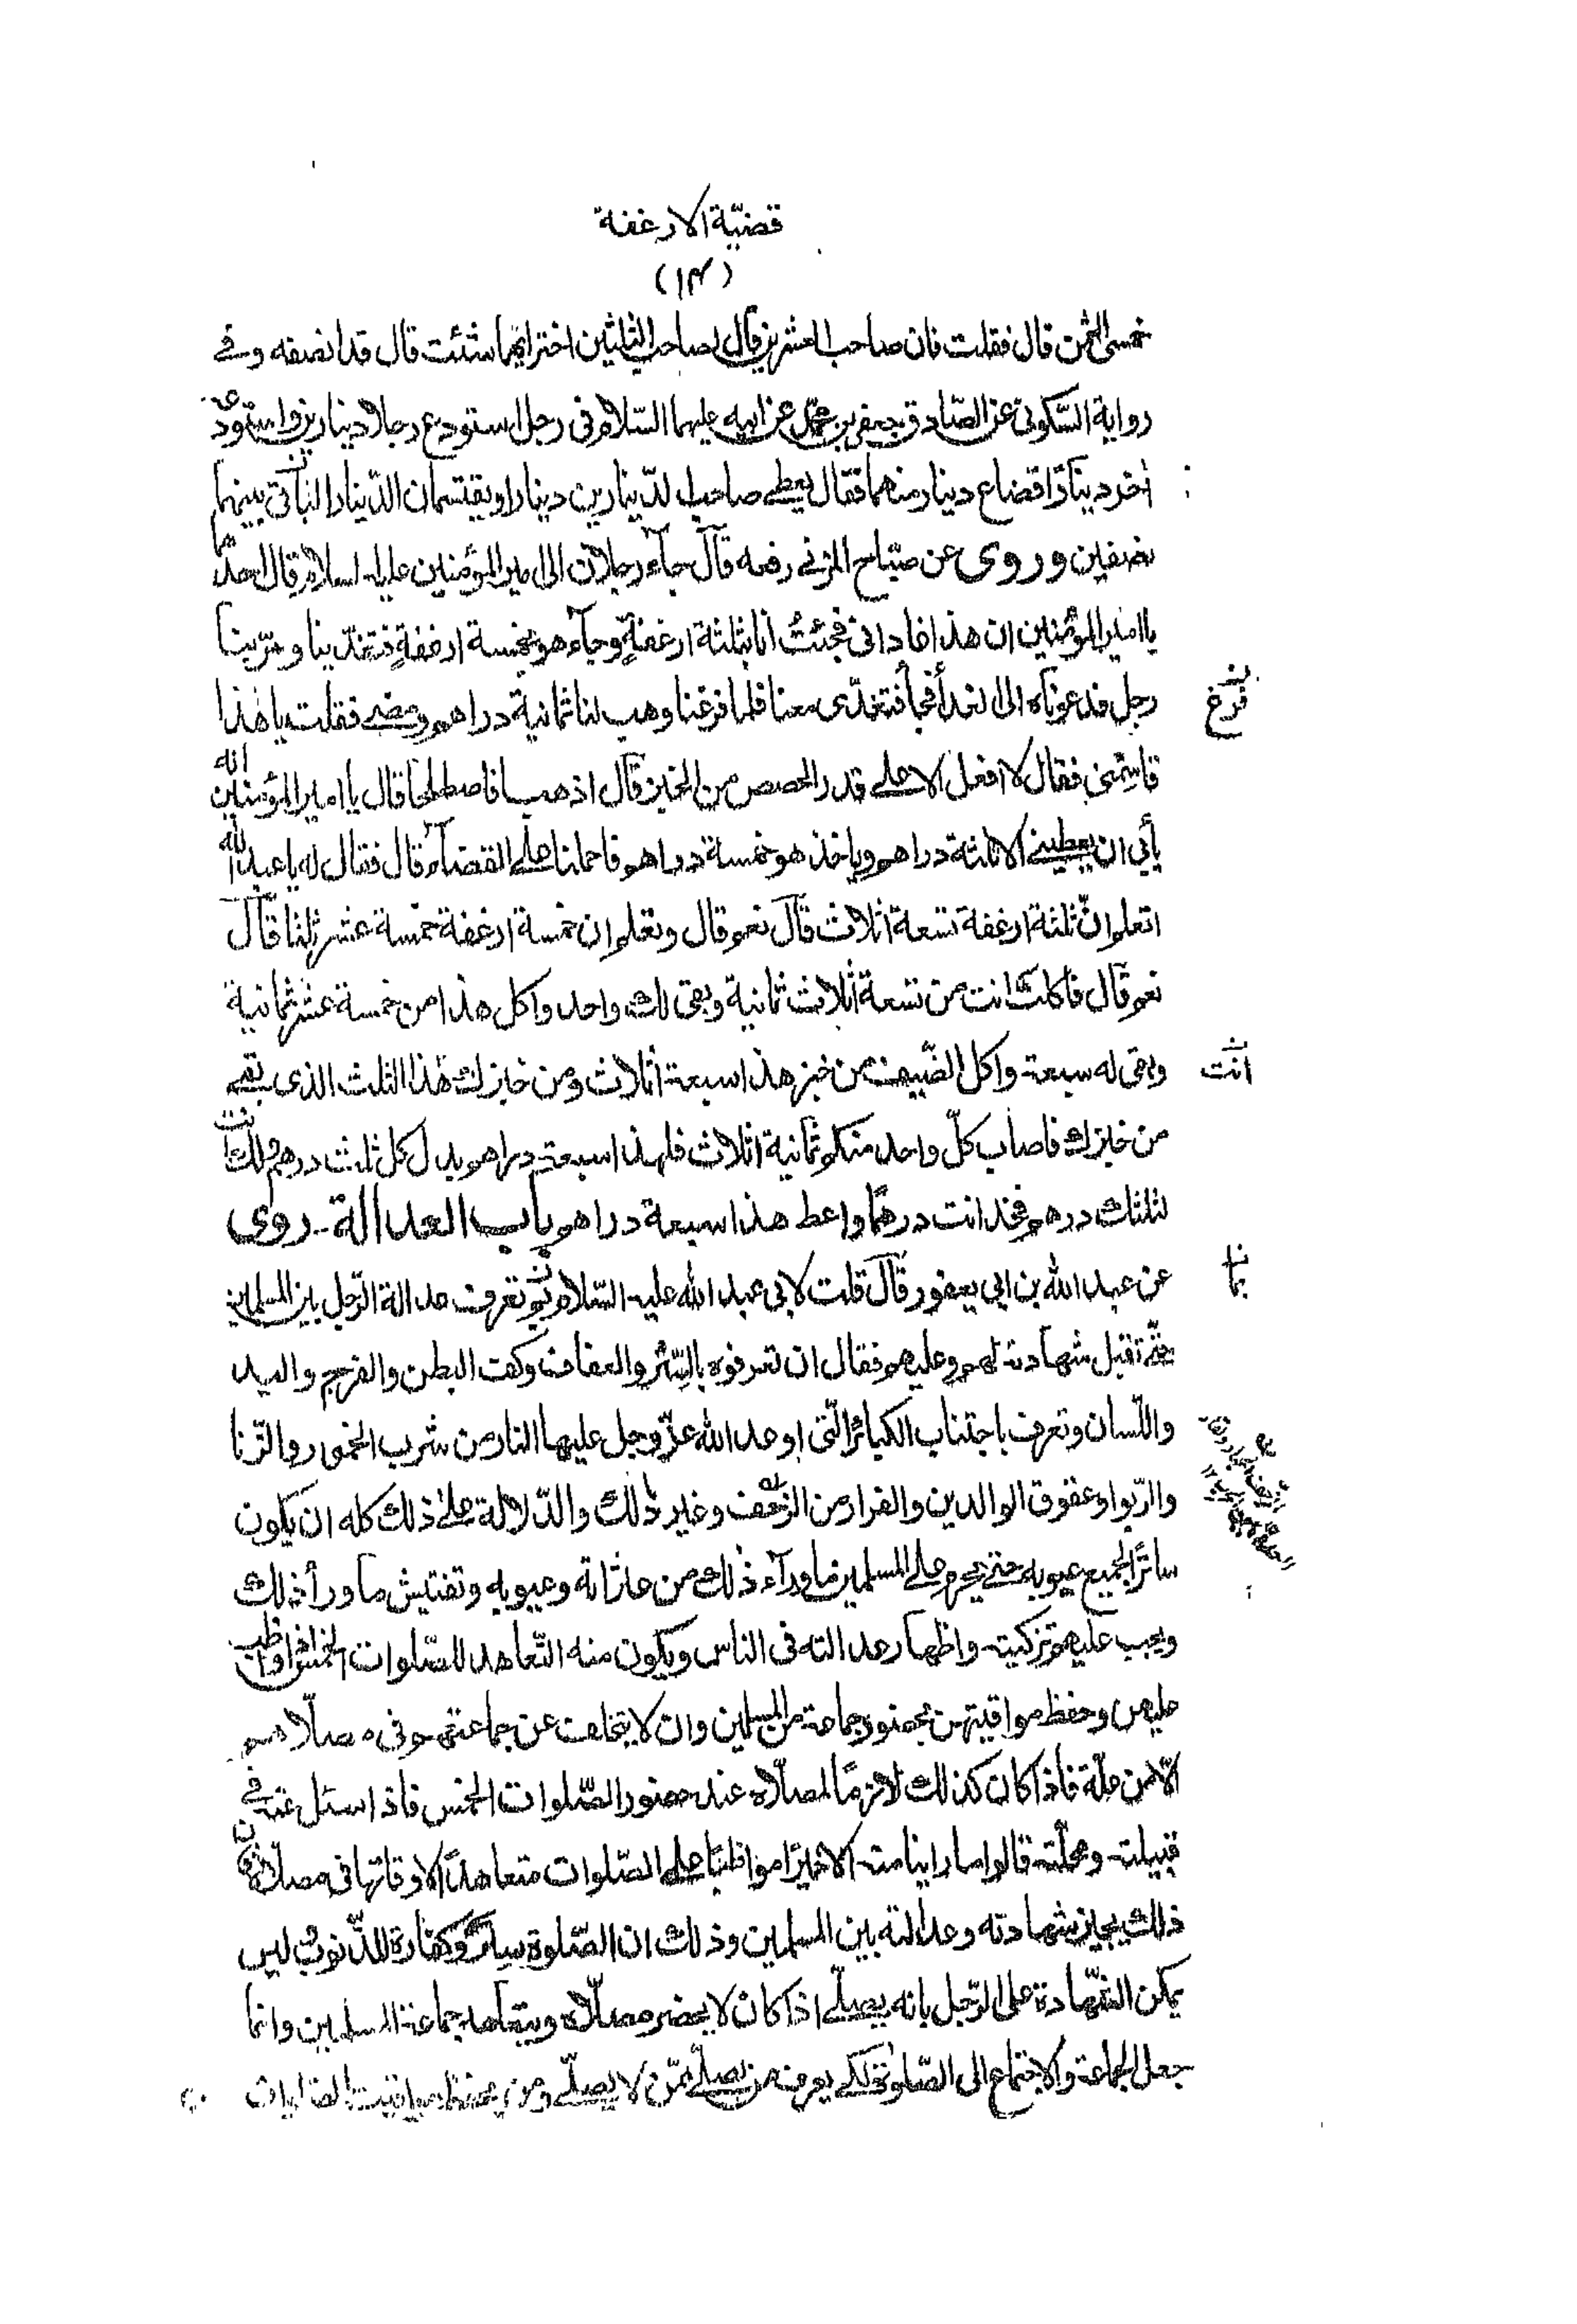 قضيّة الارغفة
(١٤)
خمسى الثمن قال فقلت فان صاحب العشرين قال لصاحب الثلثين اختر ايّهما شئت قال قد انصفه وفى
رواية السّكونى عن الصّادق جعفر بن محمّد عن ابيه عليهما السّلام فى رجل استودع رجلا دينارين واستودعه
اٰخر دينارًا فضاع دينار منهما فقال يعطى صاحب الدّينارين دينارا ويقتسمان الدّينار الباقى بينهما
نصفين وروى عن صبّاح المزنى رفعه قال جآء رجلان الى امير المؤمنين عليه السلام فقال احدهما
يا امير المؤمنين ان هذا غادانى فجئتُ انا بثلثة ارغفةٍ وجآء هو بخمسة ارغفةٍ فتغدّينا ومرّ بنا
رجل فدعوناه الى الغدآء فجآء فتغدّى معنا فلما فرغنا وهب لنا ثمانية دراهم ومضى فقلت يا هٰذا
فرغ
قاسمنى فقال لا افعل الا على قدر الحصص من الخبز قال اذهبا فاصطلحا قال يا امير المؤمنين انه
يأبى ان يعطينى الا ثلثة دراهم وياخذ هو خمسة دراهم فاحملنا على القضآء قال فقال له يا عبد الله
اتعلم انّ ثلثة ارغفة تسعة اثلاث قال نعم قال وتعلم ان خمسة ارغفة خمسة عشر ثلثا قال
نعم قال فاكلت انت من تسعة اثلاث ثمانية وبقى لك واحد واكل هذا من خمسة عشر ثمانية
وبقى له سبعة واكل الضّيف من خبز هذا سبعة اثلاث ومن خبزك هٰذا الثلث الذى بقى
انت
من خبزك فاصاب كلّ واحد منكم ثمانية اثلاث فلهذا سبعة دراهم بدل كل ثلث درهم ولك انت
لثلثك درهم فخذ انت درهمًا واعط هذا سبعة دراهم باب العدالة روى
عن عبد الله بن ابى يعفور قال قلت لابى عبد الله عليه السّلام بم تعرف عدالة الرّجل بين المسلمين
بما
حتّى تقبل شهادته لهم وعليهم فقال ان تعرفوه بالسّتر والعفاف وكف البطن والفرج واليد
واللّسان وتعرف باجتناب الكبائر الّتى اوعد الله عزّ وجل عليها النار من شرب الخمور والزّنا
والرّبوا وعقوق الوالدين والفرار من الزحف وغير ذٰلك والدّلالة على ذلك كله ان يكون
ساترًا لجميع عيوبه حتى يحرم على المسلمين ما ورآء ذٰلك من عثراته وعيوبه وتفتيش ما ورآء ذلك
ويجب عليهم تزكيته واظهار عدالته فى الناس ويكون منه التّعاهد للصّلوات الخمس اذا واظب
عليهن وحفظ مواقيتهن بحضور جماعة من المسلمين وان لا يتخلف عن جماعتهم فى مصلّاهم
الّا من علّة فاذا كان كذلك لازمًا لمصلّاه عند حضور الصّلوات الخمس فاذا سئل عنه فى
قبيلته ومحلّته قالوا ما راينا منه الا خيرًا مواظبًا على الصّلوات متعاهدًا لاوقاتها فى مصلّاه فان
ذلك يجيز شهادته وعدالته بين المسلمين وذلك ان الصّلوة ستر وكفارة للذّنوب وليس
يمكن الشّهادة على الرّجل بانه يصلّى اذا كان لا يحضر مصلّاه ويتعاهد جماعة المسلمين وانما
جعل الجماعة والاجتماع الى الصّلوٰة لكى يعرف من يصلّى ممّن لا يصلّى ومن يحفظ مواقيت الصلوات